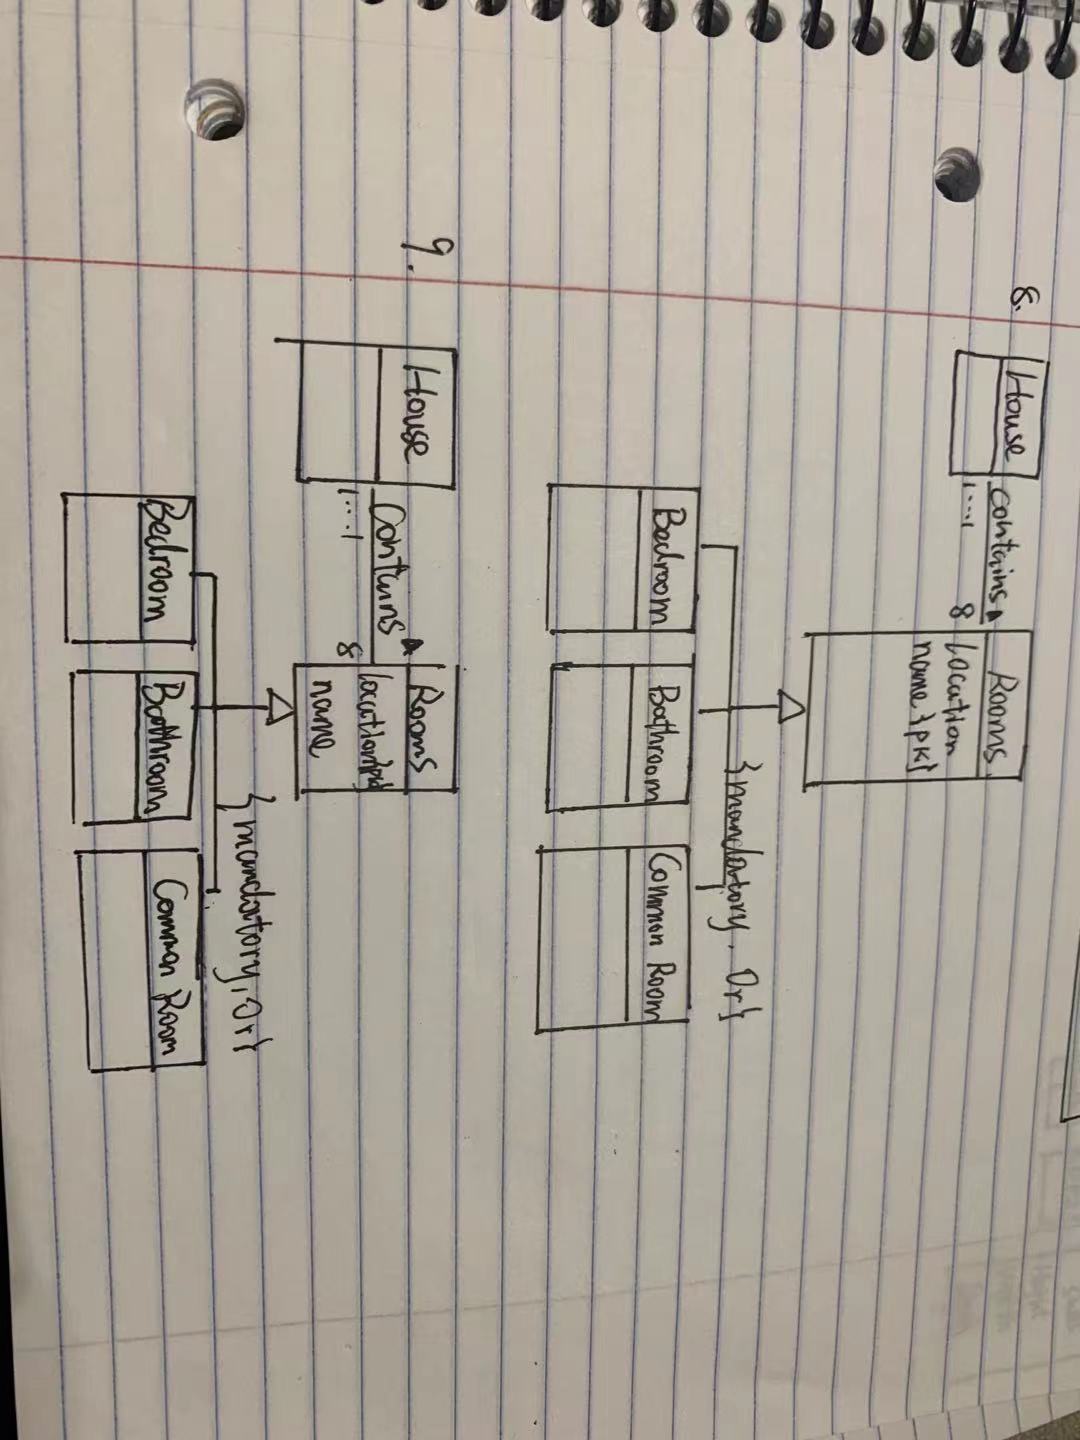 8.
House
contains
1...1
8
Rooms
location
name {pk}
{mandatory. Or}
Bedroom
Bathroom
Common Room
9.
House
Contains
1...1
8
Rooms
location{pk}
name
{mandatory, Or}
Bedroom
Bathroom
Common Room